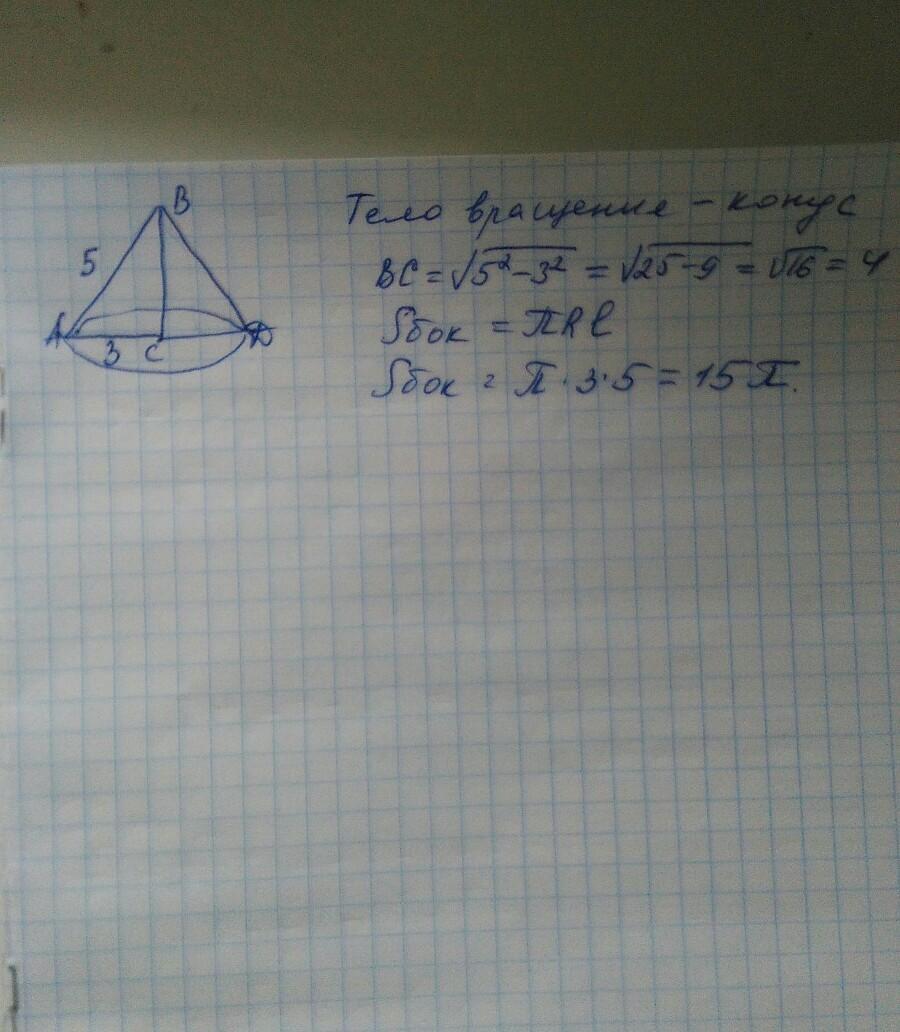 B
5
A
3 C
D
Тело вращения – конус
BC = √5² – 3² = √25 – 9 = √16 = 4
Sбок = πRl
Sбок = π · 3 · 5 = 15π.